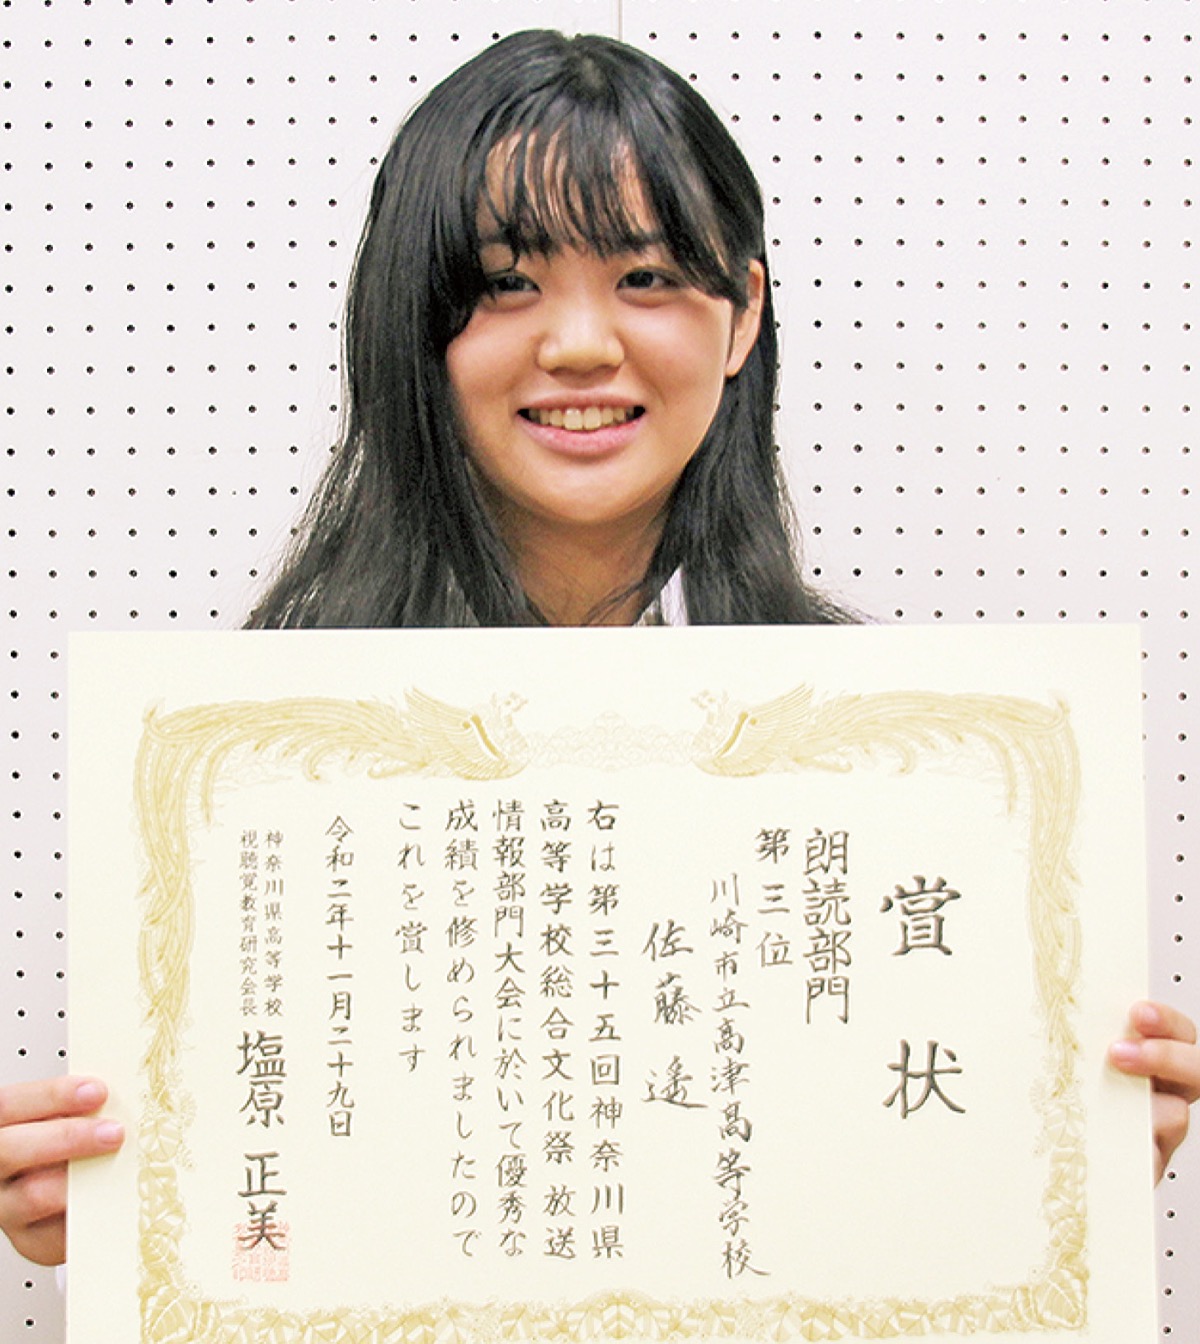 賞状
朗読部門
第三位
川崎市立高津高等学校
佐藤 遥
右は第三十五回神奈川県
高等学校総合文化祭 放送
情報部門大会に於いて優秀な
成績を修められましたので
これを賞します
令和二年十一月二十九日
神奈川県高等学校
視聴覚教育研究会長
塩原 正美